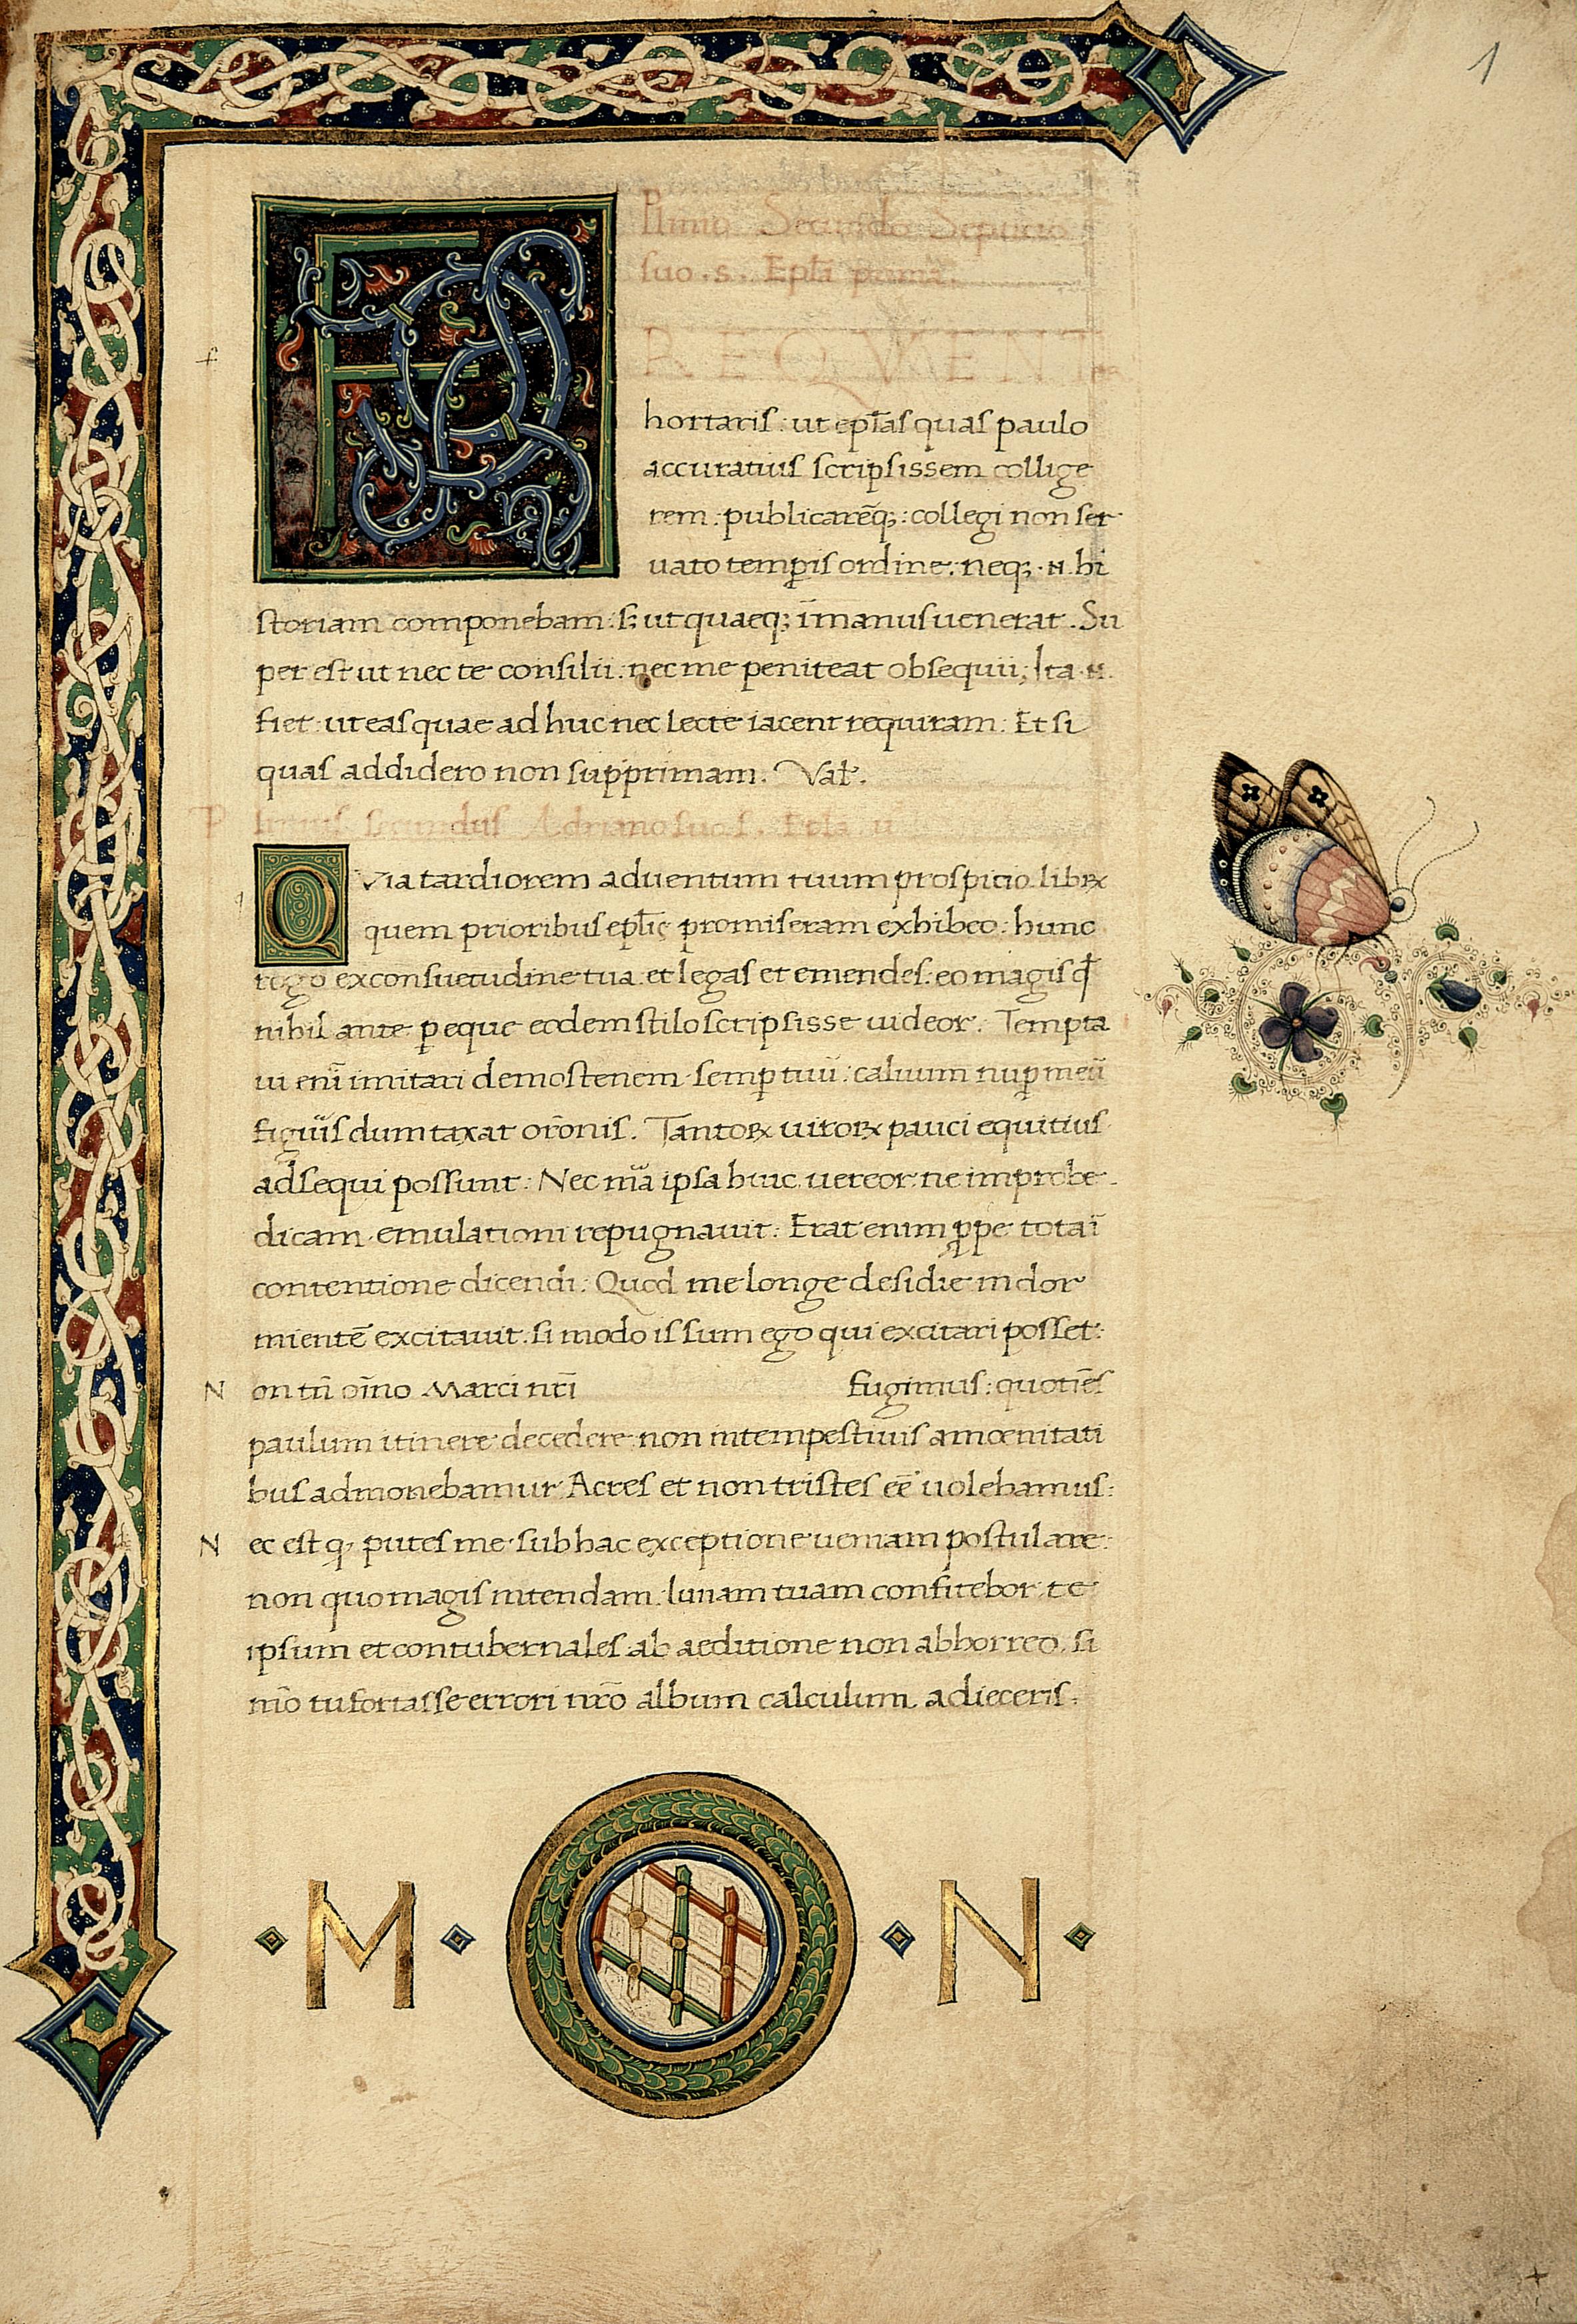 1
Plinius Secundus Septicio
suo . s . Epl̃a prima.
F REQVENTer
f
hortaris : ut epl̃as quas paulo
accuratius scripsissem collige
rem : publicarẽq; : collegi non ser
uato temp̱is ordine : neq; · n̄ · hi
storiam componebam : s; ut quaeq; ī manus uenerat . Su
per est ut nec te consilii : nec me peniteat obsequii; Ita · n̄ ·
fiet : ut eas quae ad huc nec lecte iacent requiram : Et si
quas addidero non supprimam . Val̃ .
P linius secundus Adriano suo s . Epl̃a ii
q
Q Via tardiorem aduentum tuum prospicio libꝝ
quem prioribus epl̃is promiseram exhibeo : hunc
rogo ex consuetudine tua et legas et emendes : eo magis ꝙ
nihil ante ꝑ eque eodem stilo scripsisse uideor . Tempta
ui enī imitari demostenem semꝑ tuū : caluum nuꝑ meū
figuris dum taxat or̃onis . Tantoꝝ uiroꝝ pauci equitius
adsequi possunt : Nec mã ipsa huic uereor ne improbe
dicam emulationi repugnauit : Erat enim ꝓpe tota ī
contentione dicendi : Quod me longe desidie indor
mientē excitauit . si modo is sum ego qui excitari posset :
N on tñ oĩno Marci nr̃i fugimus : quotiēs
paulum itinere decedere non intempestiuis amoenitati
bus admonebamur Acres et non tristes eē uolebamus :
N ec est q; putes me sub hac exceptione ueniam postulare :
non quo magis intendam limam tuam confitebor te
ipsum et contubernales ab aeditione non abhorreo . si
mõ tu fortasse errori nr̃o album calculum adieceris .
M N